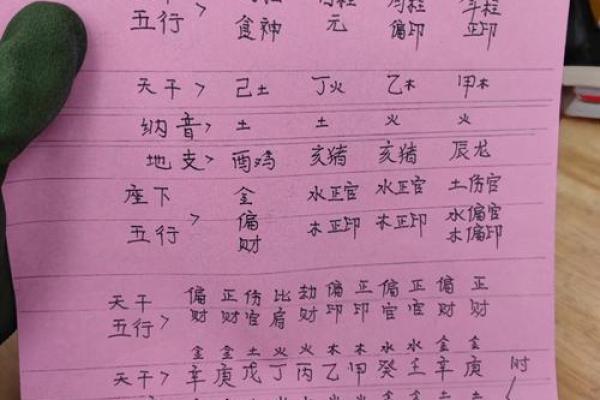 五行> 食神 元 偏印 正印
天干> 己土 丁火 乙木 甲木
纳音> 土 土 火 火
地支> 酉鸡 亥猪 亥猪 辰龙
座下 金 水正官 水正官 土伤官
五行> 偏财 木正印 木正印 水偏官 木偏印
天干 偏 正 伤 比 劫 偏 正 偏 正 偏 正
五行> 财 财 官 肩 财 印 印 官 官 财 财
金 金 土 火 火 木 木 水 水 金 金
天干> 辛 庚 戊 丁 丙 乙 甲 癸 壬 辛 庚 时